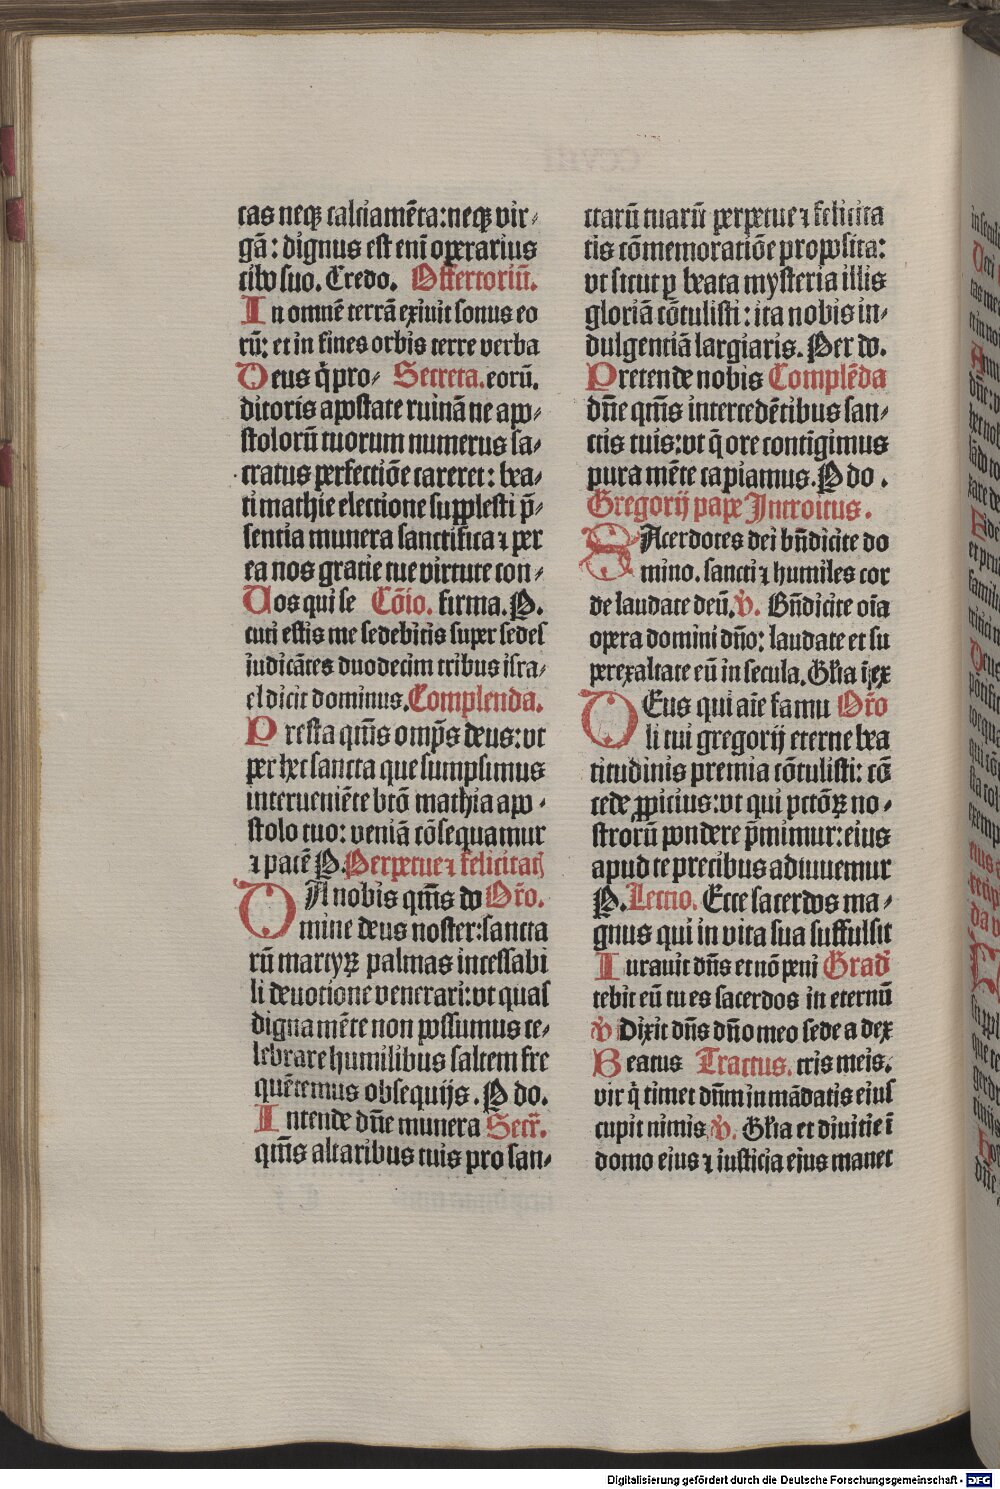 cas neqꝫ calciamēta: neqꝫ vir⸗
gā: dignus est eni̅ operarius
cibo suo. Credo. Offertoriū.
In omnē terrā exiuit sonus eo
rū: et in fines orbis terre verba
Deus q̇ pro⸗ Secreta. eorū.
ditoris apostate ruinā ne apo⸗
stolorū tuorum numerus sa⸗
cratus perfectiōe careret: bea⸗
ti mathie electione supplesti p̄⸗
sentia munera sanctifica ⁊ per
ea nos gratie tue virtute con⸗
Uos qui se Cōio. firma. P.
cuti estis me sedebitis super sedes
iudicātes duodecim tribus isra⸗
el dicit dominus. Complenda.
Presta qm̄s omp̄s deus: vt
per hec sancta que sumpsimus
interueniēte btō mathia apo⸗
stolo tuo: veniā cōsequamur
⁊ pacē P. Perpetue ⁊ felicitatꝭ
DA nobis qm̄s do Or̄o.
mine deus noster: sancta
rū martyrꝫ palmas incessabi
li deuotione venerari: vt quas
digna mēte non possumus ce⸗
lebrare humilibus saltem fre
quētemus obsequijs. P do.
Intende dn̄e munera Secr̄.
qm̄s altaribus tuis pro san⸗
ctarū tuarū perpetue ⁊ felicita
tis cōmemoratiōe proposita:
vt sicut ꝑ beata mysteria illis
gloriā cōtulisti: ita nobis in⸗
dulgentiā largiaris. Per do.
Pretende nobis Complēda
dn̄e qm̄s intercedētibus san⸗
ctis tuis: vt q̄ ore contigimus
pura mēte capiamus. P do.
Gregorij pape Introitus.
SAcerdotes dei bn̄dicite do
mino. sancti ⁊ humiles cor
de laudate deū. V̄. Bn̄dicite oīa
opera domini dn̄o: laudate et su
perexaltate eū in secula. Gl̄ia ī ex
DEus qui aīe famu Or̄o
li tui gregorij eterne bea
titudinis premia cōtulisti: cō
cede ꝓpicius: vt qui pctōrꝫ no⸗
strorū pondere p̄mimur: eius
apud te precibus adiuuemur
P. Lectio. Ecce sacerdos ma⸗
gnus qui in vita sua suffulsit
Iurauit dn̄s et nō peni Grad̄
tebit eū tu es sacerdos in eternū
V̄ Dixit dn̄s dn̄o meo sede a dex
Beatus Tractus. tris meis.
vir q̇ timet dn̄m in mādatis eius
cupit nimis V̄. Gl̄ia et diuitie ī
domo eius ⁊ iusticia eius manet
Digitalisierung gefördert durch die Deutsche Forschungsgemeinschaft - DFG